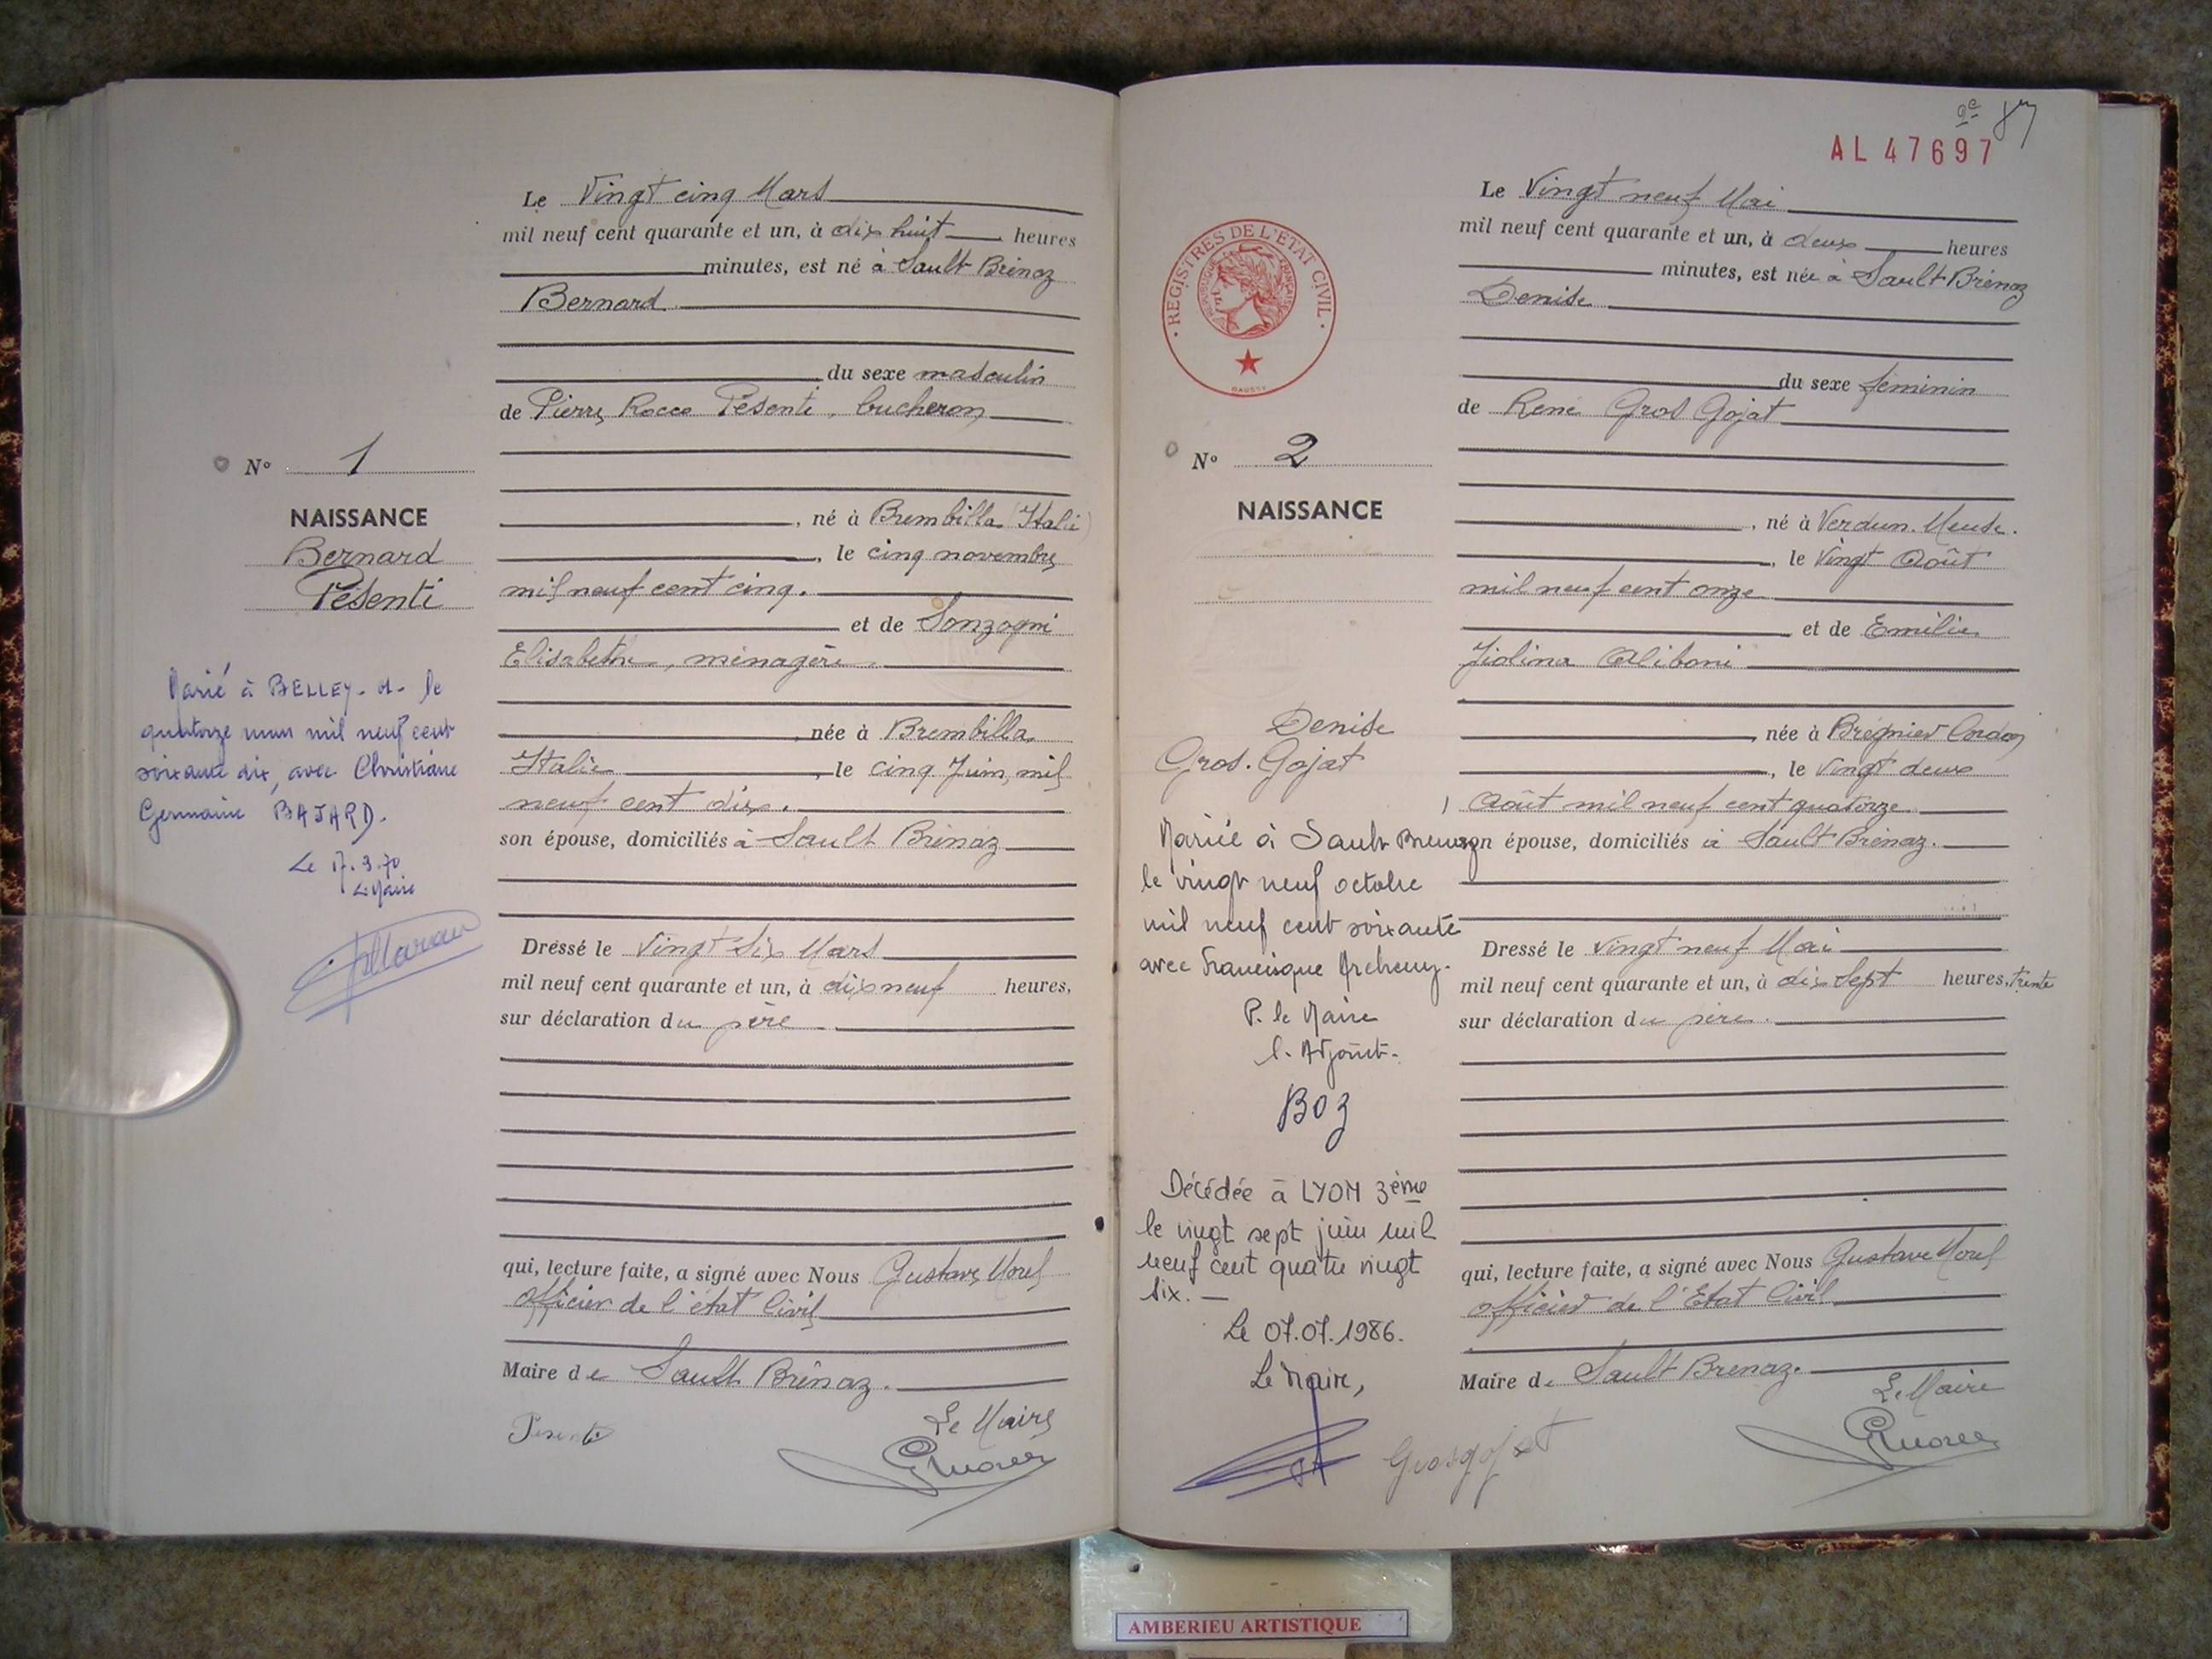 Le Vingt cinq Mars
mil neuf cent quarante et un, à dix huit heures
minutes, est né à Sault Brénaz
Bernard
du sexe masculin
de Pierre Rocco Pésenti, bucheron
N° 1
NAISSANCE
Bernard
Pésenti
, né à Brembilla (Italie)
, le cinq novembre
mil neuf cent cinq.
et de Sonzogni
Elisabethe, ménagère
née à Brembilla
Italie, le cinq Juin, mil
neuf cent dix.
son épouse, domiciliés à Sault Brénaz
Marié à BELLEY le
quatorze mars mil neuf cent
soixante dix, avec Christiane
Germaine BAJARD.
Le 17.3.70
Le Maire
Dressé le Vingt Six Mars
mil neuf cent quarante et un, à dix neuf heures,
sur déclaration du père
qui, lecture faite, a signé avec Nous Gustave Morel
officier de l'état Civil
Maire de Sault Brénaz.
Pesenti
Le Maire
GMorel
AL 47697
REGISTRES DE L'ETAT CIVIL
Le Vingt neuf Mai
mil neuf cent quarante et un, à deux heures
minutes, est née à Sault Brénaz
Denise
du sexe féminin
de René Gros Gojat
N° 2
NAISSANCE
, né à Verdun. Meuse.
, le Vingt Août
mil neuf cent onze
et de Emilie
Aliboni
née à Brégnier Cordon
, le Vingt deux
Août mil neuf cent quatorze
son épouse, domiciliés à Sault Brénaz.
Denise
Gros. Gojat
Mariée à Sault Brenaz
le vingt neuf octobre
mil neuf cent soixante
avec Francisque
P. le Maire
l'Adjoint
BOZ
Décédée à LYON 3ème
le vingt sept juin mil
neuf cent quatre vingt
six. —
Le 07.07.1986.
Le Maire,
Dressé le Vingt neuf Mai
mil neuf cent quarante et un, à dix Sept heures, trente
sur déclaration du père.
qui, lecture faite, a signé avec Nous Gustave Morel
officier de l'Etat Civil
Maire de Sault Brenaz.
Grosgojat
Le Maire
GMorel
AMBERIEU ARTISTIQUE